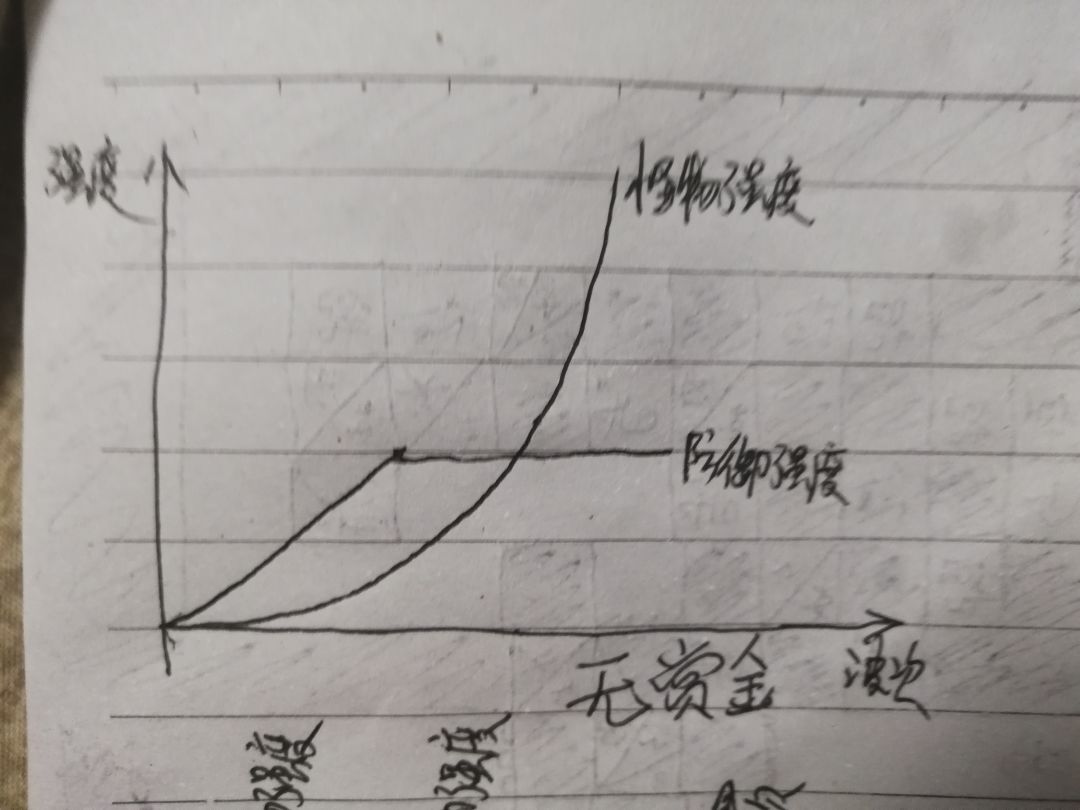 强度
怪物强度
防御强度
无赏金 波次
强度
强度